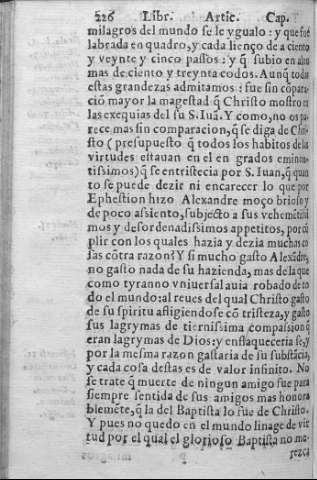 226 Libr. Artic. Cap.
milagros del mundo se le ygualo: y que fue
labrada en quadro, y cada lienço de a ciento
y veynte y cinco passos: y q̃ subio en alto
mas de ciento y treynta codos. Aunq̃ todas
estas grandezas admitamos: fue sin cõpara-
ciõ mayor la magestad q̃ Christo mostro en
las exequias del su S. Iuã. Y como, no os pa-
rece mas sin comparacion, q̃ se diga de Chri-
sto (presupuesto q̃ todos los habitos de las
virtudes estauan en el en grados eminen-
tissimos) q̃ se entristecia por S. Iuan, q̃ quan
to se puede dezir ni encarecer lo que por
Ephestion hizo Alexandre moço brioso y
de poco assiento, subjecto a sus vehemẽtissi
mos y desordenadissimos appetitos, por cũ
plir con los quales hazia y dezia muchas co
sas cõtra razon? Y si mucho gasto Alexãdre,
no gasto nada de su hazienda, mas de la que
como tyranno vniuersal auia robado de to
do el mundo: al reues del qual Christo gasto
de su spiritu afligiendose cõ tristeza, y gasto
sus lagrymas de tiernissima compassion q̃
eran lagrymas de Dios: y enflaqueceria se, y
por la mesma razon gastaria de su substãcia,
y cada cosa destas es de valor infinito. No
se trate q̃ muerte de ningun amigo fue para
siempre sentida de sus amigos mas honora
blemẽte, q̃ la del Baptista lo fue de Christo.
Y pues no quedo en el mundo linage de vir
tud por el qual el glorioso Baptista no me-
rezca